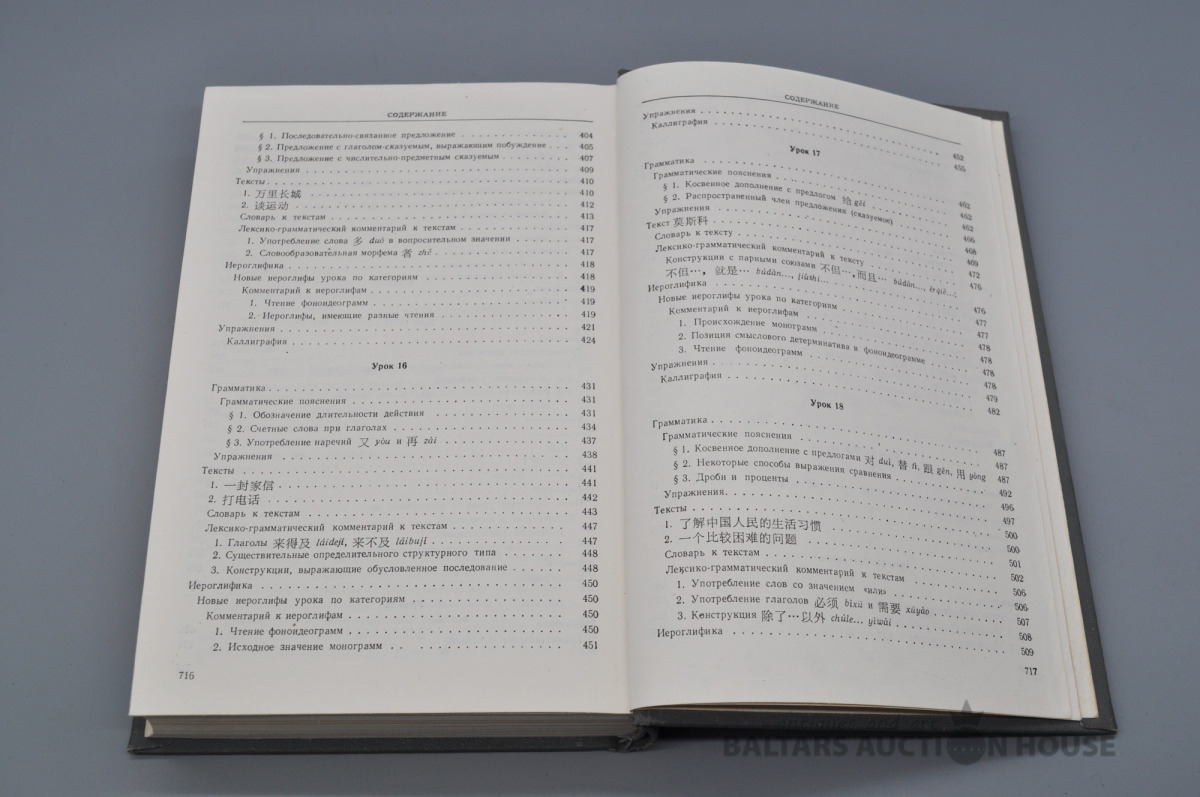 СОДЕРЖАНИЕ
§ 1. Последовательно-связанное предложение 404
§ 2. Предложение с глаголом-сказуемым, выражающим побуждение 405
§ 3. Предложение с числительно-предметным сказуемым 407
Упражнения 409
Тексты 410
1. 万里长城 410
2. 谈运动 412
Словарь к текстам 413
Лексико-грамматический комментарий к текстам 417
1. Употребление слова 多 duō в вопросительном значении 417
2. Словообразовательная морфема 者 zhě 417
Иероглифика 418
Новые иероглифы урока по категориям 418
Комментарий к иероглифам 419
1. Чтение фоноидеограмм 419
2. Иероглифы, имеющие разные чтения 419
Упражнения 421
Каллиграфия 424
Урок 16
Грамматика 431
Грамматические пояснения 431
§ 1. Обозначение длительности действия 431
§ 2. Счетные слова при глаголах 434
§ 3. Употребление наречий 又 yòu и 再 zài 437
Упражнения 438
Тексты 441
1. 一封家信 441
2. 打电话 442
Словарь к текстам 443
Лексико-грамматический комментарий к текстам 447
1. Глаголы 来得及 láidejí, 来不及 láibují 447
2. Существительные определительного структурного типа 448
3. Конструкции, выражающие обусловленное последование 448
Иероглифика 450
Новые иероглифы урока по категориям 450
Комментарий к иероглифам 450
1. Чтение фоноидеограмм 450
2. Исходное значение монограмм 451
716
СОДЕРЖАНИЕ
Упражнения 452
Каллиграфия 455
Урок 17
Грамматика 462
Грамматические пояснения 462
§ 1. Косвенное дополнение с предлогом 给 gěi 462
§ 2. Распространенный член предложения (сказуемое)
Упражнения 466
Текст 莫斯科 468
Словарь к тексту 469
Лексико-грамматический комментарий к тексту 472
Конструкции с парными союзами 不但…,而且… búdàn..., érqiě...;
不但…, 就是… búdàn..., jiùshi... 476
Иероглифика 476
Новые иероглифы урока по категориям 477
Комментарий к иероглифам 477
1. Происхождение монограмм 478
2. Позиция смыслового детерминатива в фоноидеограмме 478
3. Чтение фоноидеограмм 478
Упражнения 479
Каллиграфия 482
Урок 18
Грамматика 487
Грамматические пояснения 487
§ 1. Косвенное дополнение с предлогами 对 duì, 替 tì, 跟 gēn, 用 yòng 487
§ 2. Некоторые способы выражения сравнения 492
§ 3. Дроби и проценты 496
Упражнения 497
Тексты 500
1. 了解中国人民的生活习惯 500
2. 一个比较困难的问题 501
Словарь к текстам 502
Лексико-грамматический комментарий к текстам 506
1. Употребление слов со значением «или» 506
2. Употребление глаголов 必须 bìxū и 需要 xūyào 507
3. Конструкция 除了…以外 chúle... yǐwài 508
Иероглифика 509
717
antiques and art
BALTARS AUCTION HOUSE